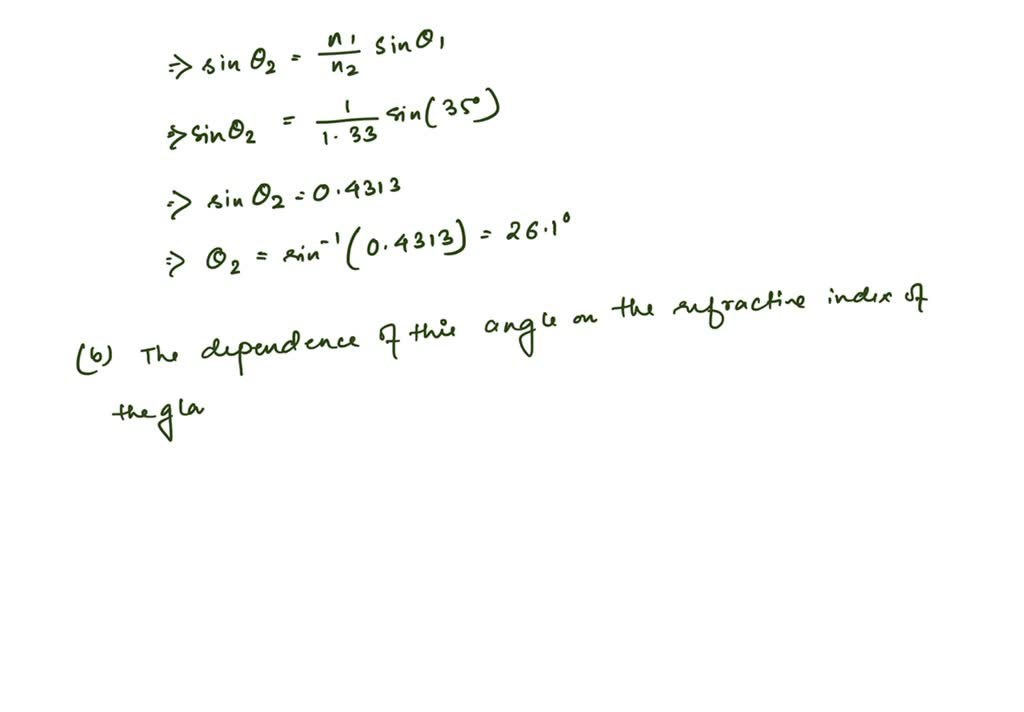 ⇒ sin θ₂ = n₁/n₂ sin θ₁
⇒ sin θ₂ = 1/1.33 sin(35°)
⇒ sin θ₂ = 0.4313
⇒ θ₂ = sin⁻¹(0.4313) = 26.1°
(b) The dependence of this angle on the refractive index of
the gla